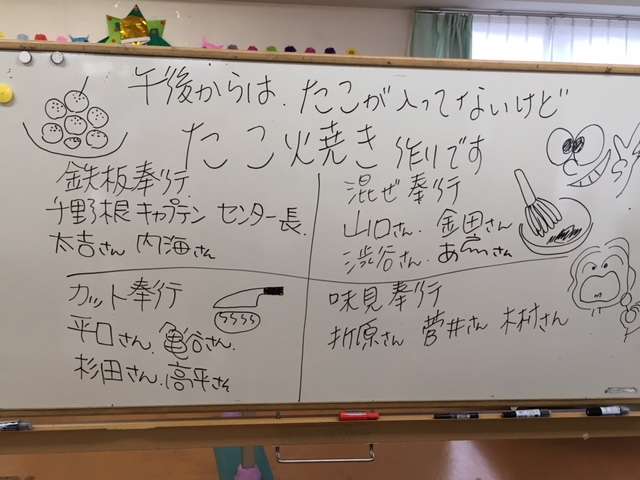 午後からは、たこが入ってないけど
たこ焼き作りです
鉄板奉行
野根キャプテン センター長
太吉さん 内海さん
混ぜ奉行
山口さん、金田さん
渋谷さん、
カット奉行
平口さん、亀谷さん、
杉田さん、高平さん
味見奉行
折原さん 菅井さん 木村さん